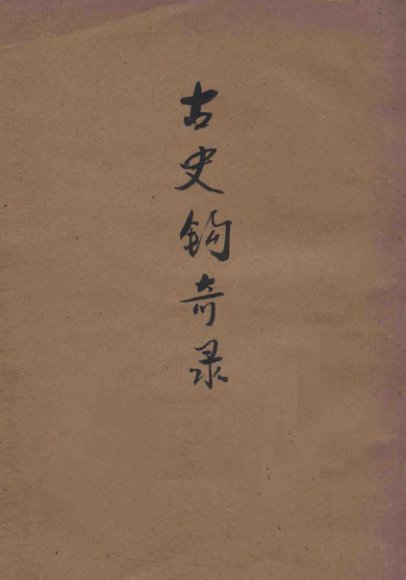 古史钩奇录